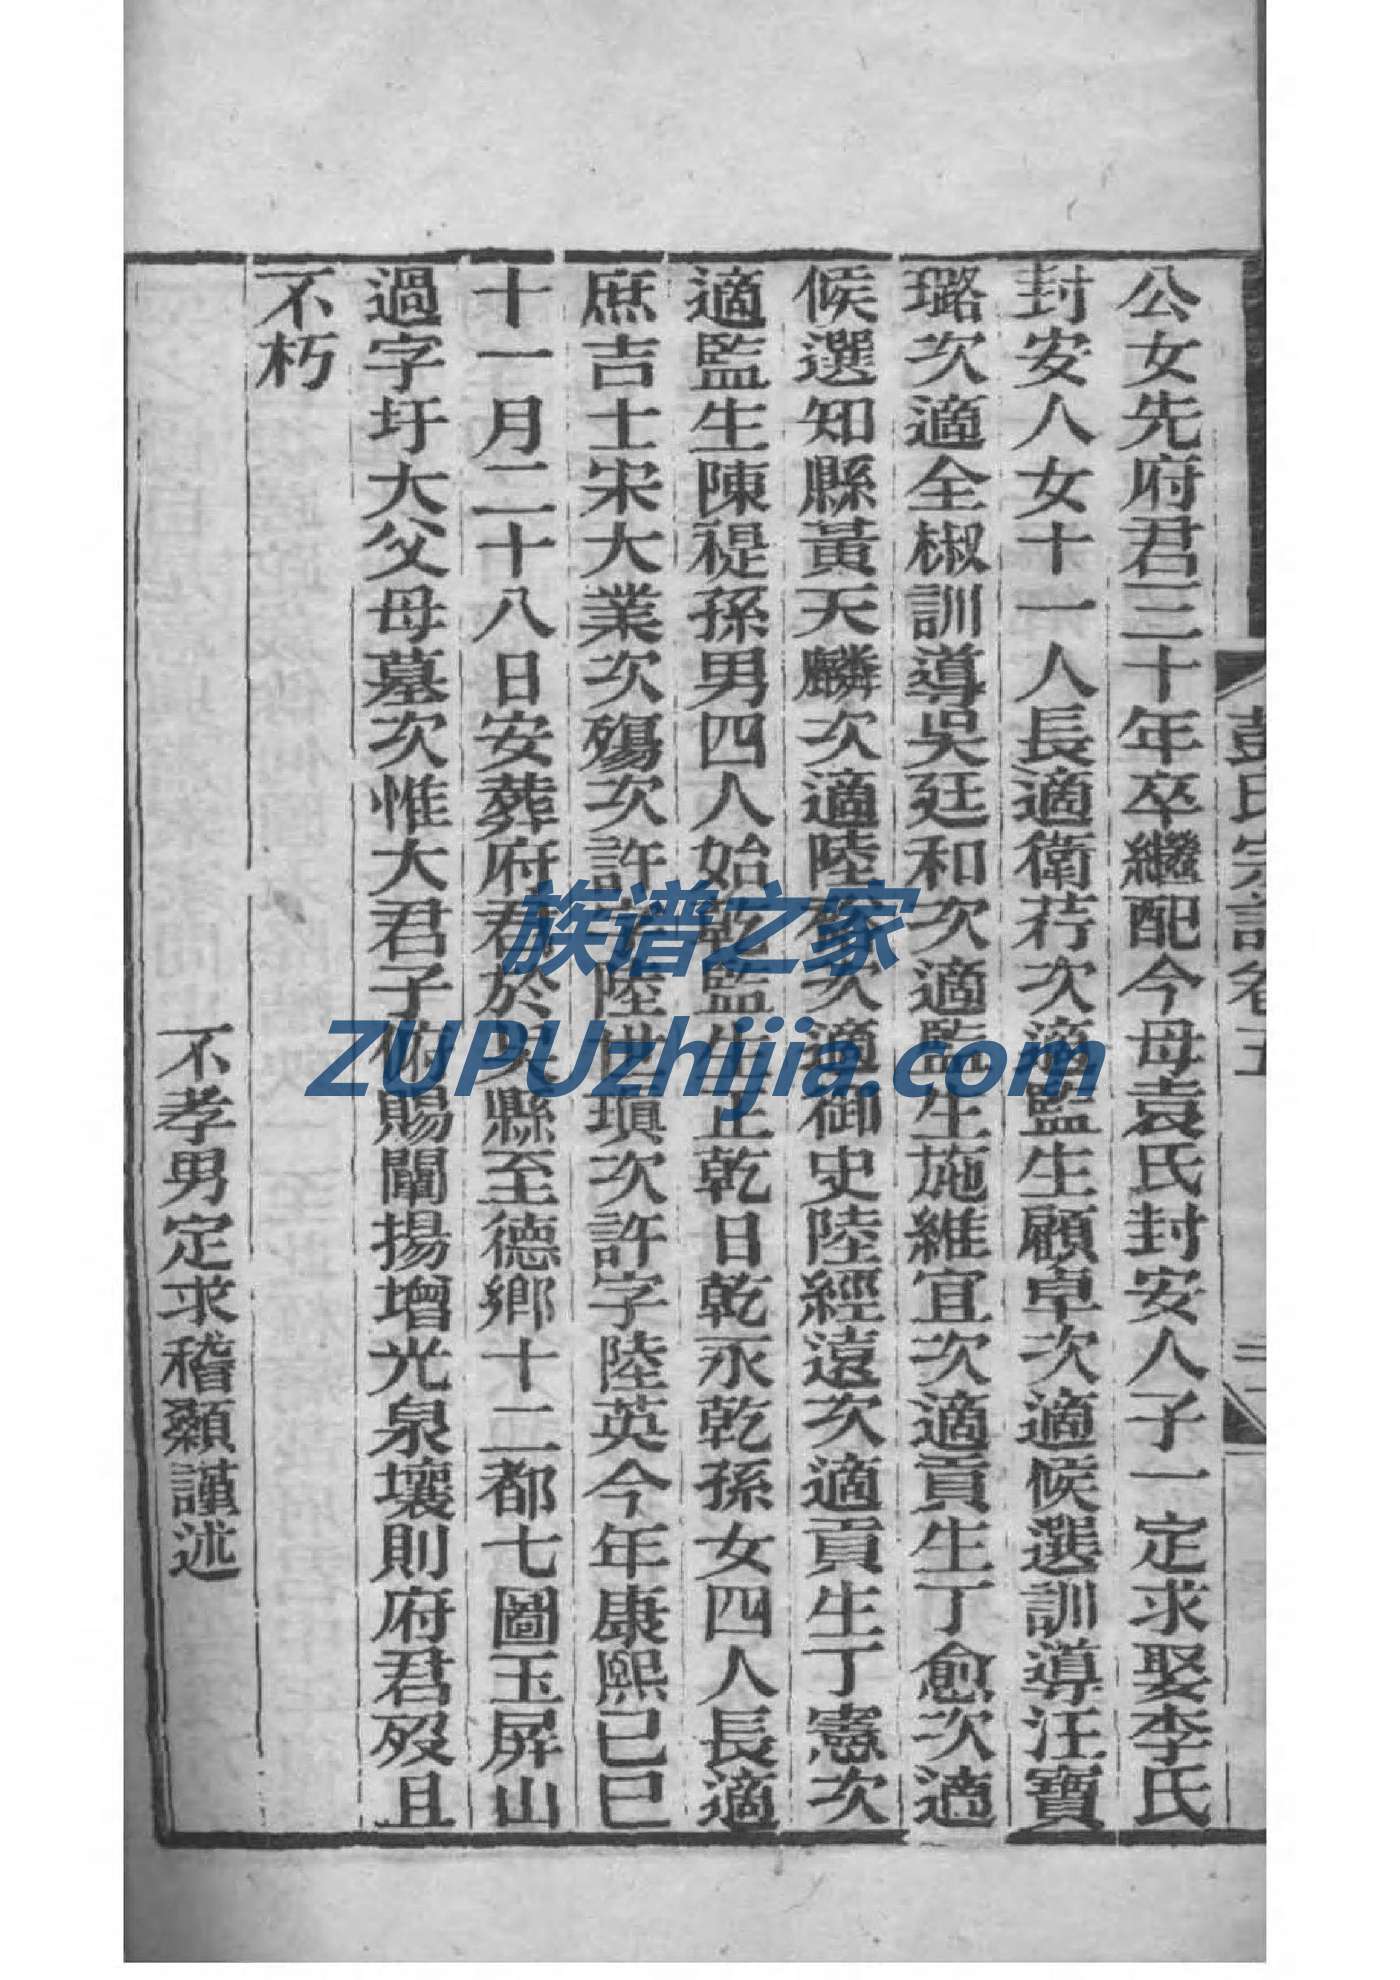 公女先府君三十年卒繼配今母袁氏封安人子一定求娶李氏
封安人女十一人長適衛荇次適監生顧卓次適候選訓導汪寶
璐次適全椒訓導吳廷和次適監生施維宜次適貢生丁愈次適
候選知縣黃天麟次適陸次適御史陸經遠次適貢生丁憲次
適監生陳禔孫男四人始乾監生正乾日乾永乾孫女四人長適
庶吉士宋大業次殤次許字陸世瑱次許字陸英今年康熙己巳
十一月二十八日安葬府君於吳縣至德鄉十二都七圖玉屏山
過字圩大父母墓次惟大君子俯賜闡揚增光泉壤則府君歿且
不朽
不孝男定求稽顙謹述
彭氏宗譜卷五
族谱之家
ZUPUzhijia.com